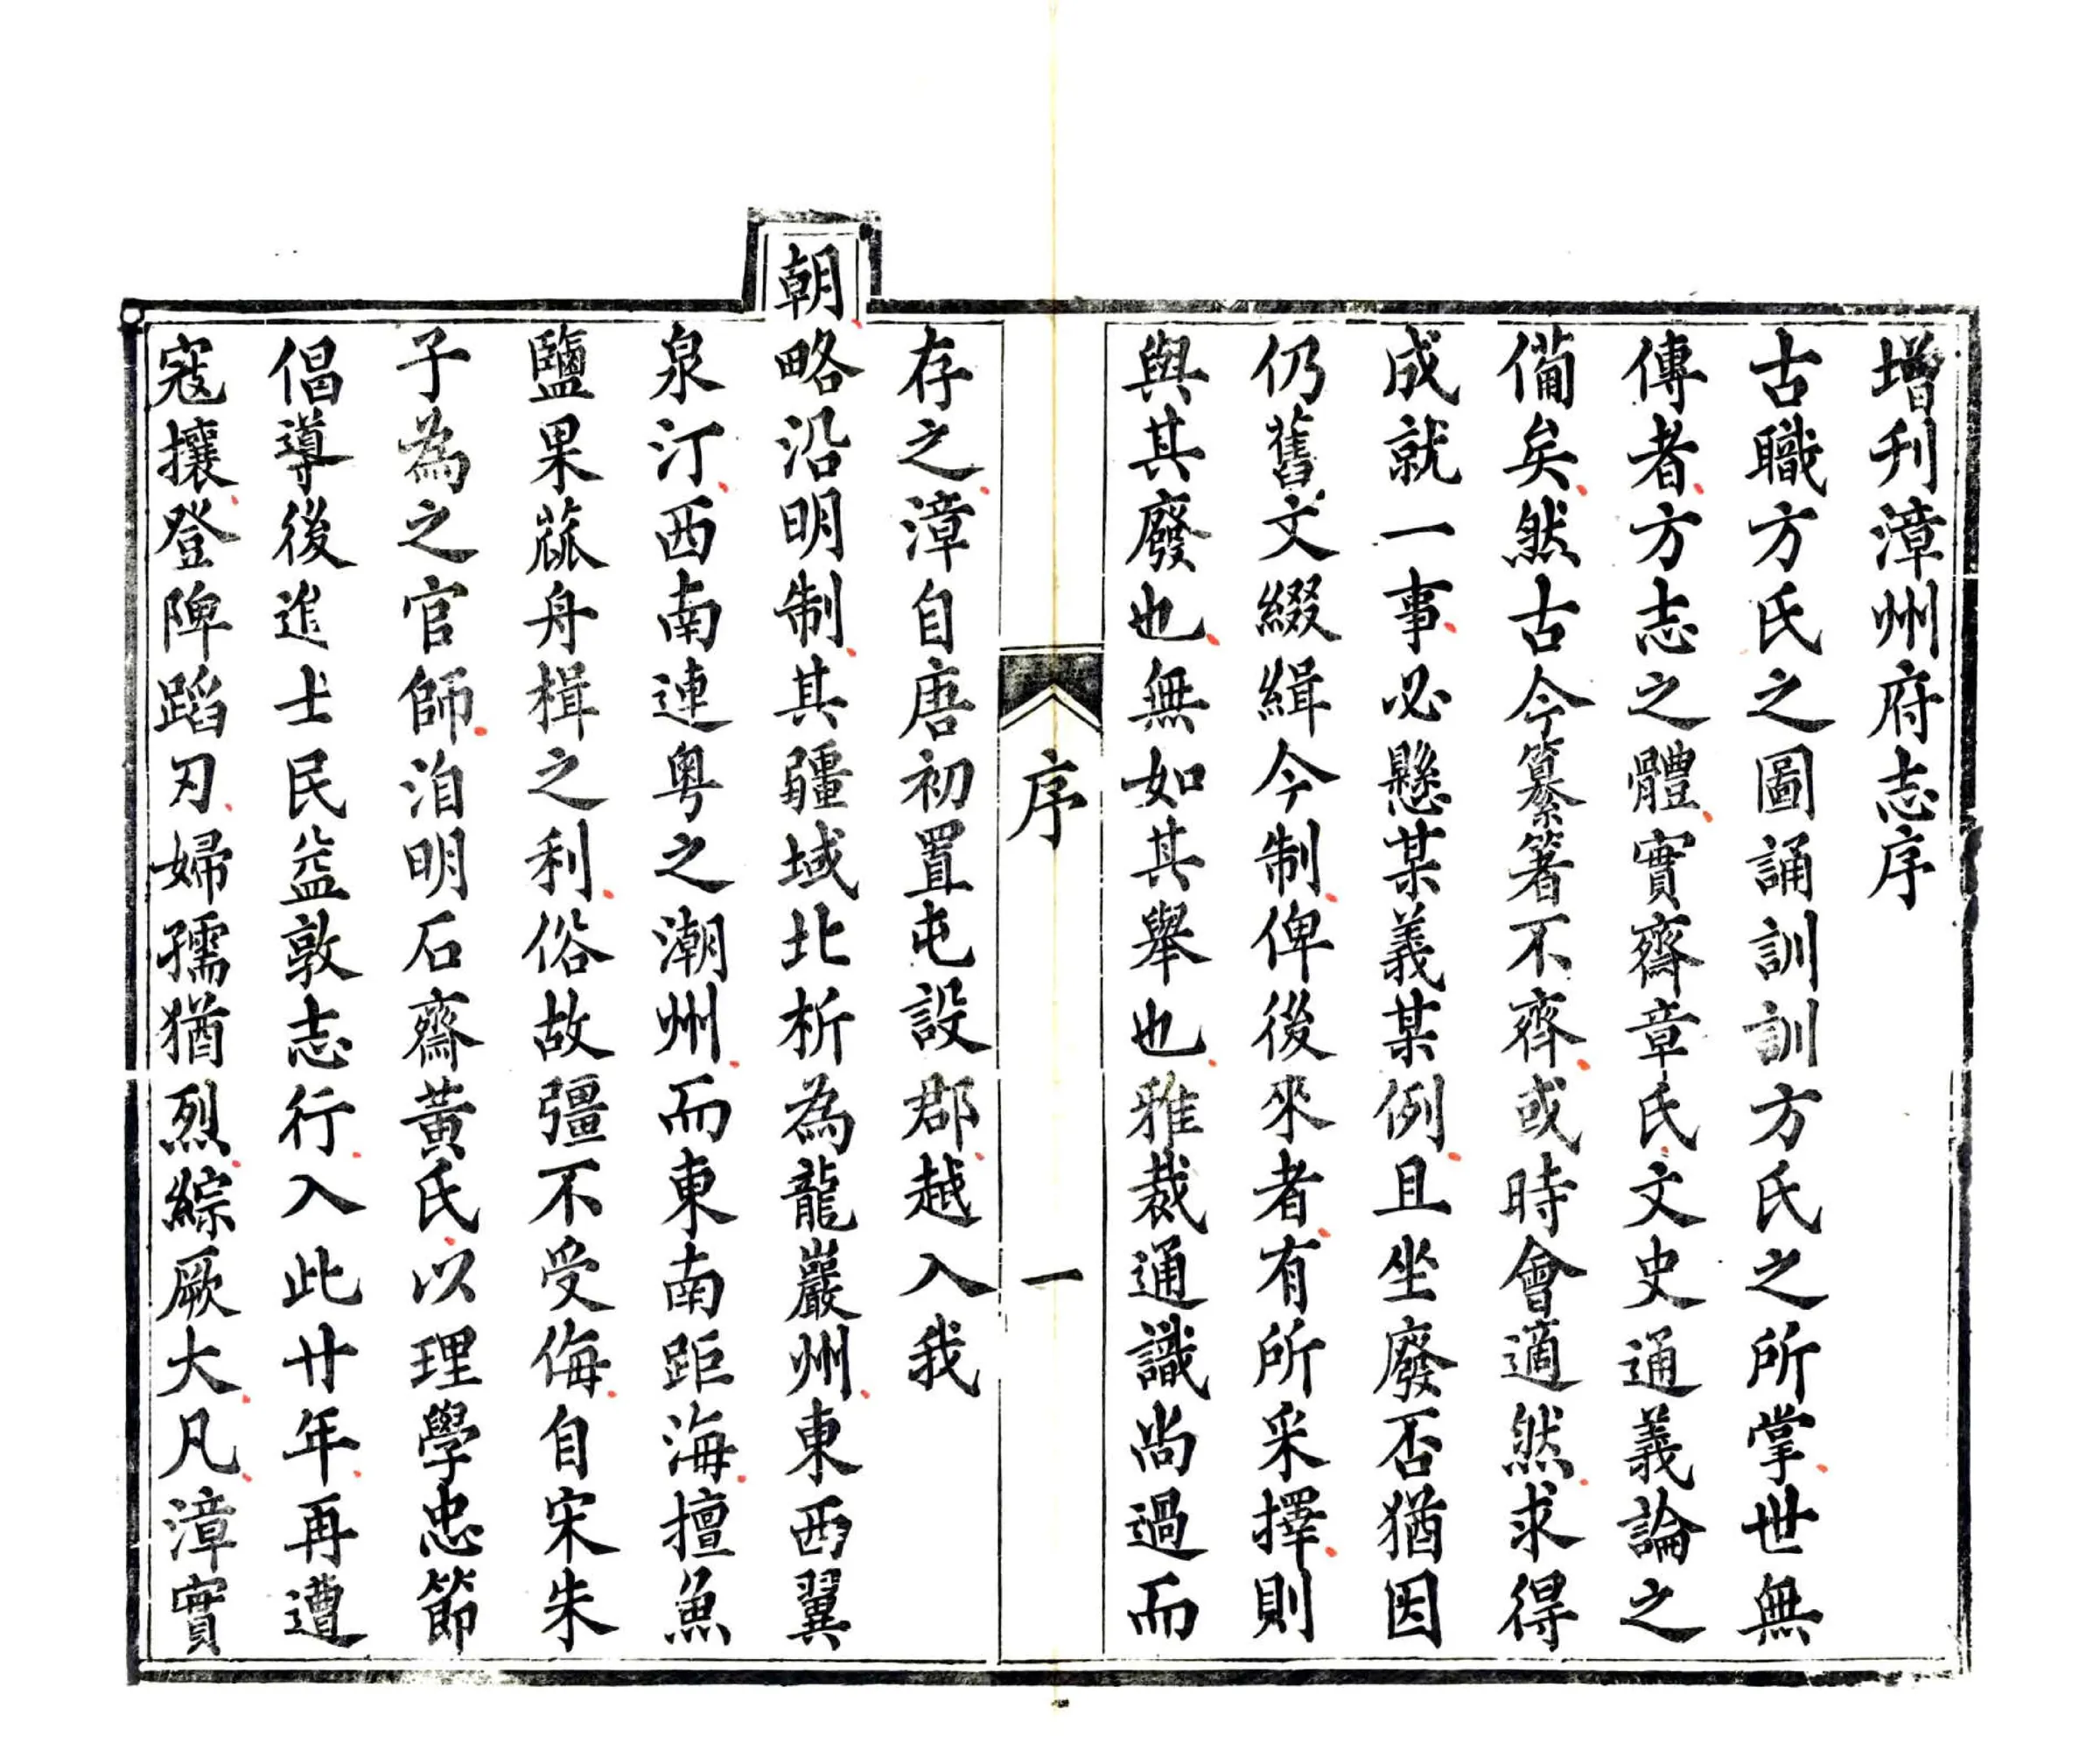 增刋漳州府志序
古職方氏之圖誦訓訓方氏之所掌世無
傳者方志之體實齋章氏文史通義論之
備矣然古今纂箸不齊或時會適然求得
成就一事必懸某義某例且坐廢否猶因
仍舊文綴緝今制俾後來者有所采擇則
與其廢也無如其舉也雅裁通識尚過而
序
一
存之漳自唐初置屯設郡越入我
朝略沿明制其疆域北析為龍巖州東西翼
泉汀西南連粤之潮州而東南距海擅魚
鹽果蓏舟楫之利俗故彊不受侮自宋朱
子為之官師洎明石齋黃氏以理學忠節
倡導後進士民益敦志行入此廿年再遭
寇攘登陴蹈刃婦孺猶烈綜厥大凡漳實